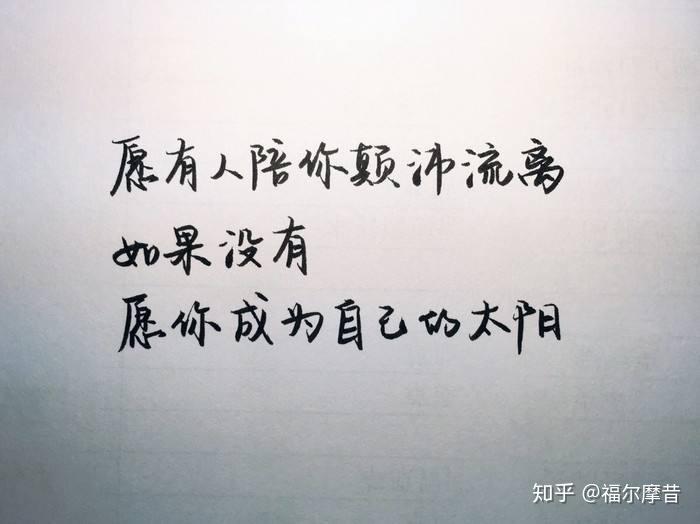 愿有人陪你颠沛流离
如果没有
愿你成为自己的太阳
知乎 @福尔摩昔